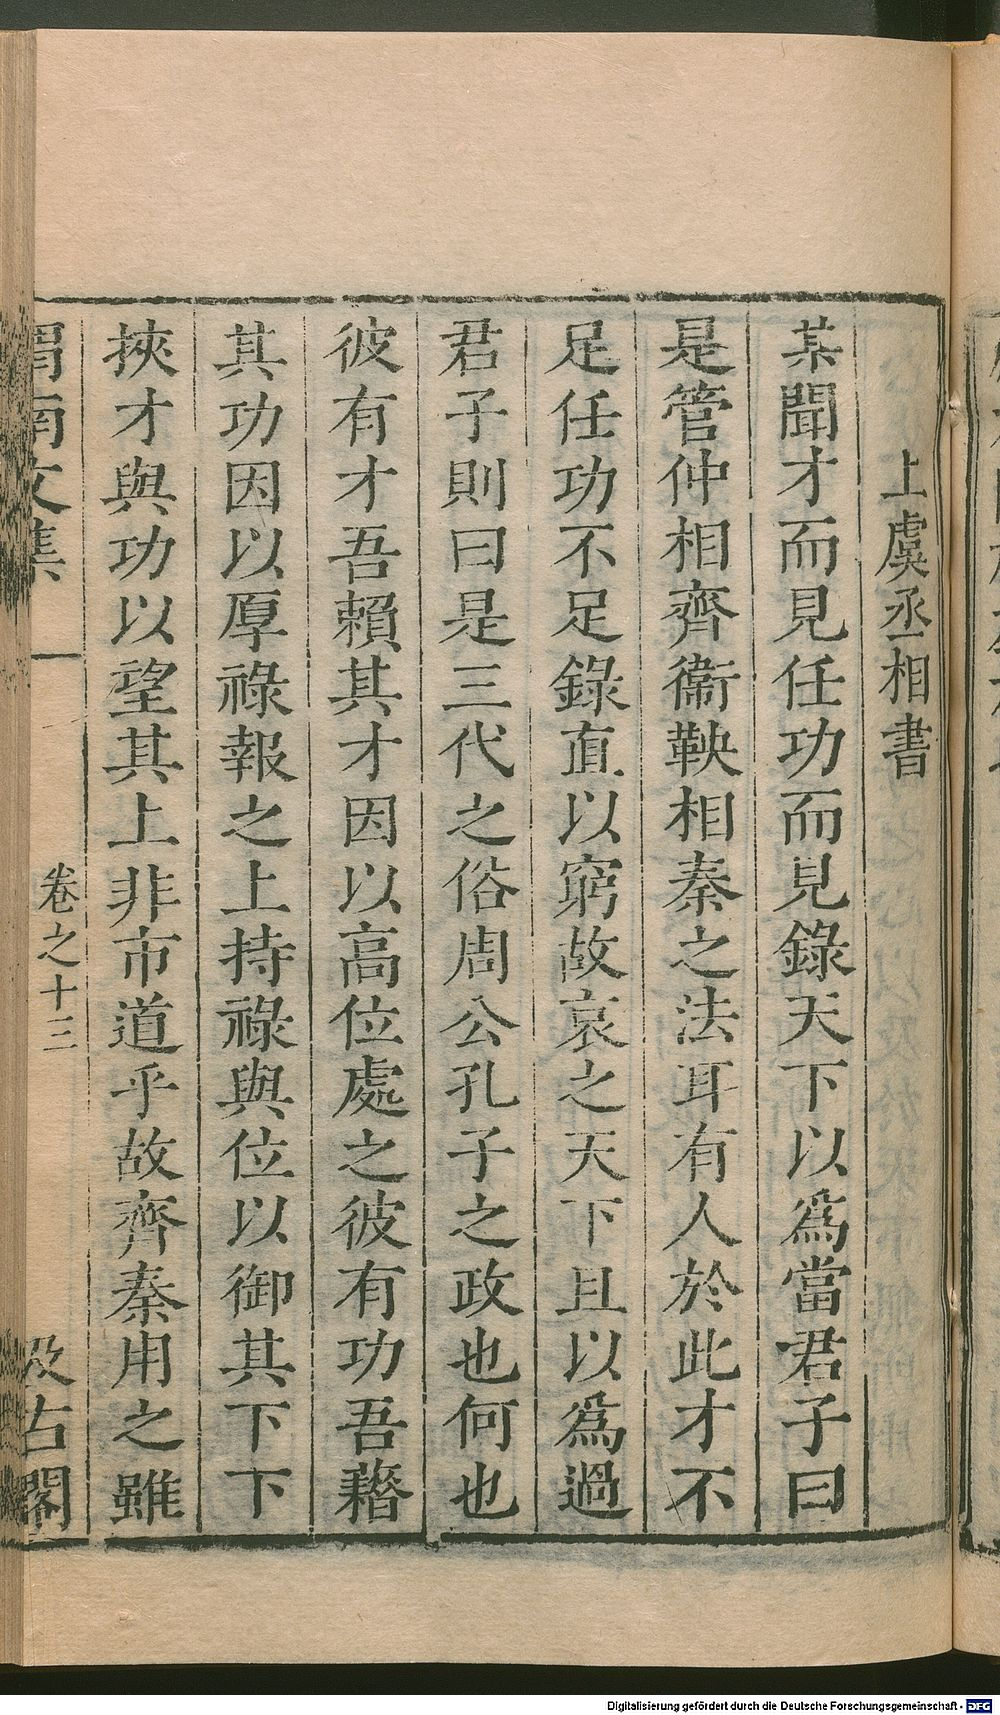 上虞丞相書
某聞才而見任功而見錄天下以爲當君子曰
是管仲相齊衞鞅相秦之法耳有人於此才不
足任功不足錄直以窮故哀之天下且以爲過
君子則曰是三代之俗周公孔子之政也何也
彼有才吾賴其才因以高位處之彼有功吾藉
其功因以厚祿報之上持祿與位以御其下下
挾才與功以望其上非市道乎故齊秦用之雖
渭南文集 卷之十三 汲古閣
Digitalisierung gefördert durch die Deutsche Forschungsgemeinschaft - DFG